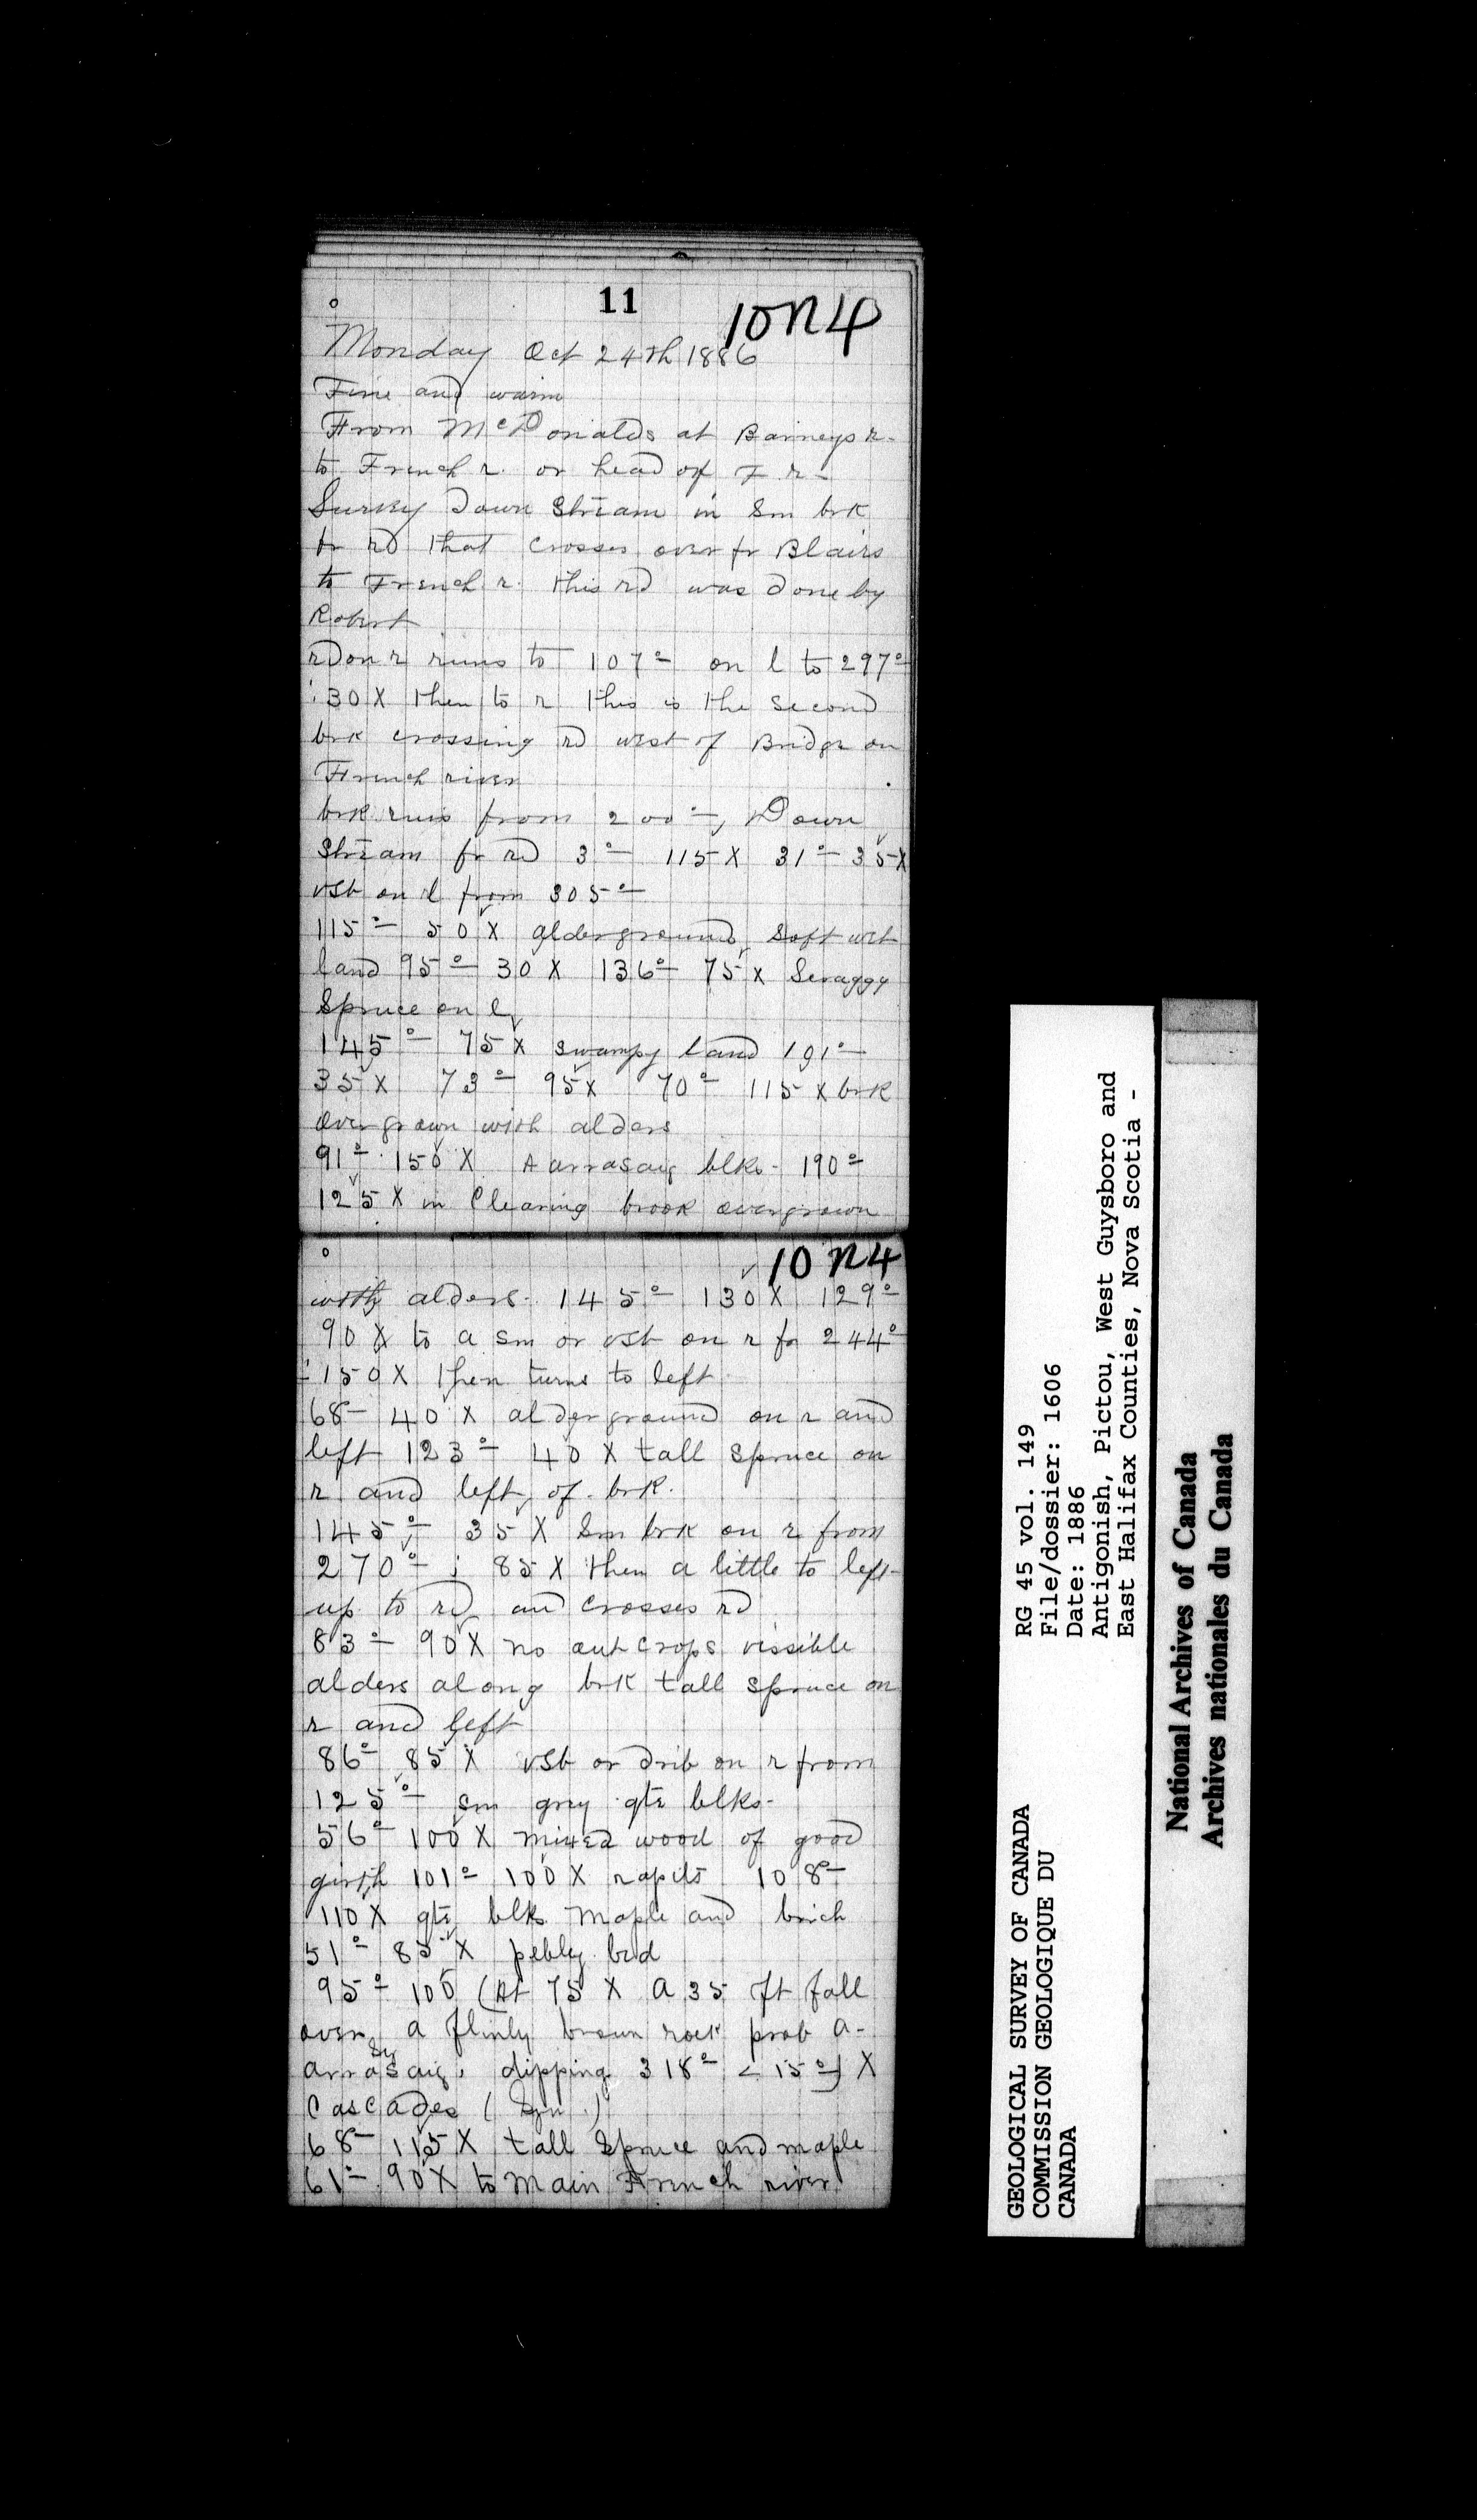 11
10N4
Monday Oct 24th 1886
Fine and warm
From McDonalds at Barneys r.
to French r. or head of F r-
Survey down stream in Sm brk
fr rd that crosses over fr Blairs
to French r. this rd was done by
Robert
rd on r runs to 107° on l to 297°
: 30 X then to r this is the second
brk crossing rd west of Bridge on
French river
brk runs from 200°, Down
Stream fr rd 3° 115 X 31° 35 X
vsb on l from 305°
115° 50 X alderground, soft wet
land 95° 30 X 136° 75 X Scraggy
Spruce on l,
145° 75 X swampy land 101°
35 X 73° 95 X 70° 115 X brk
overgrown with alders
91° 150 X Aarrasaig blks- 190°
125 X in Clearing brook overgrown
10 N4
with alders. 145° 130 X 129°
90 X to a sm or vsb on r fr 244°
: 150 X then turns to left
68° 40 X alderground on r and
left 123° 40 X tall spruce on
r and left of brk.
145° 35 X Sm brk on r from
270° : 85 X then a little to left-
up to rd and crosses rd
83° 90 X no out crops vissible
alders along brk tall spruce on
r and left
86° 85 X vsb or drib on r from
125° sm grey qte blks-
56° 100 X mixed wood of good
girth 101° 100 X rapits 108°
110 X qte blks maple and birch
51° 85 X pebbly bed
95° 100 (At 75 X a 35 ft fall
over a flinty brown rock prob a-
arrasaig, dipping 318° < 15°) X
Cascades ( )
68° 115 X tall Spruce and maple
61° 90 X to Main French river
RG 45 vol. 149
File/dossier: 1606
Date: 1886
Antigonish, Pictou, West Guysboro and
East Halifax Counties, Nova Scotia -
GEOLOGICAL SURVEY OF CANADA
COMMISSION GEOLOGIQUE DU
CANADA
National Archives of Canada
Archives nationales du Canada